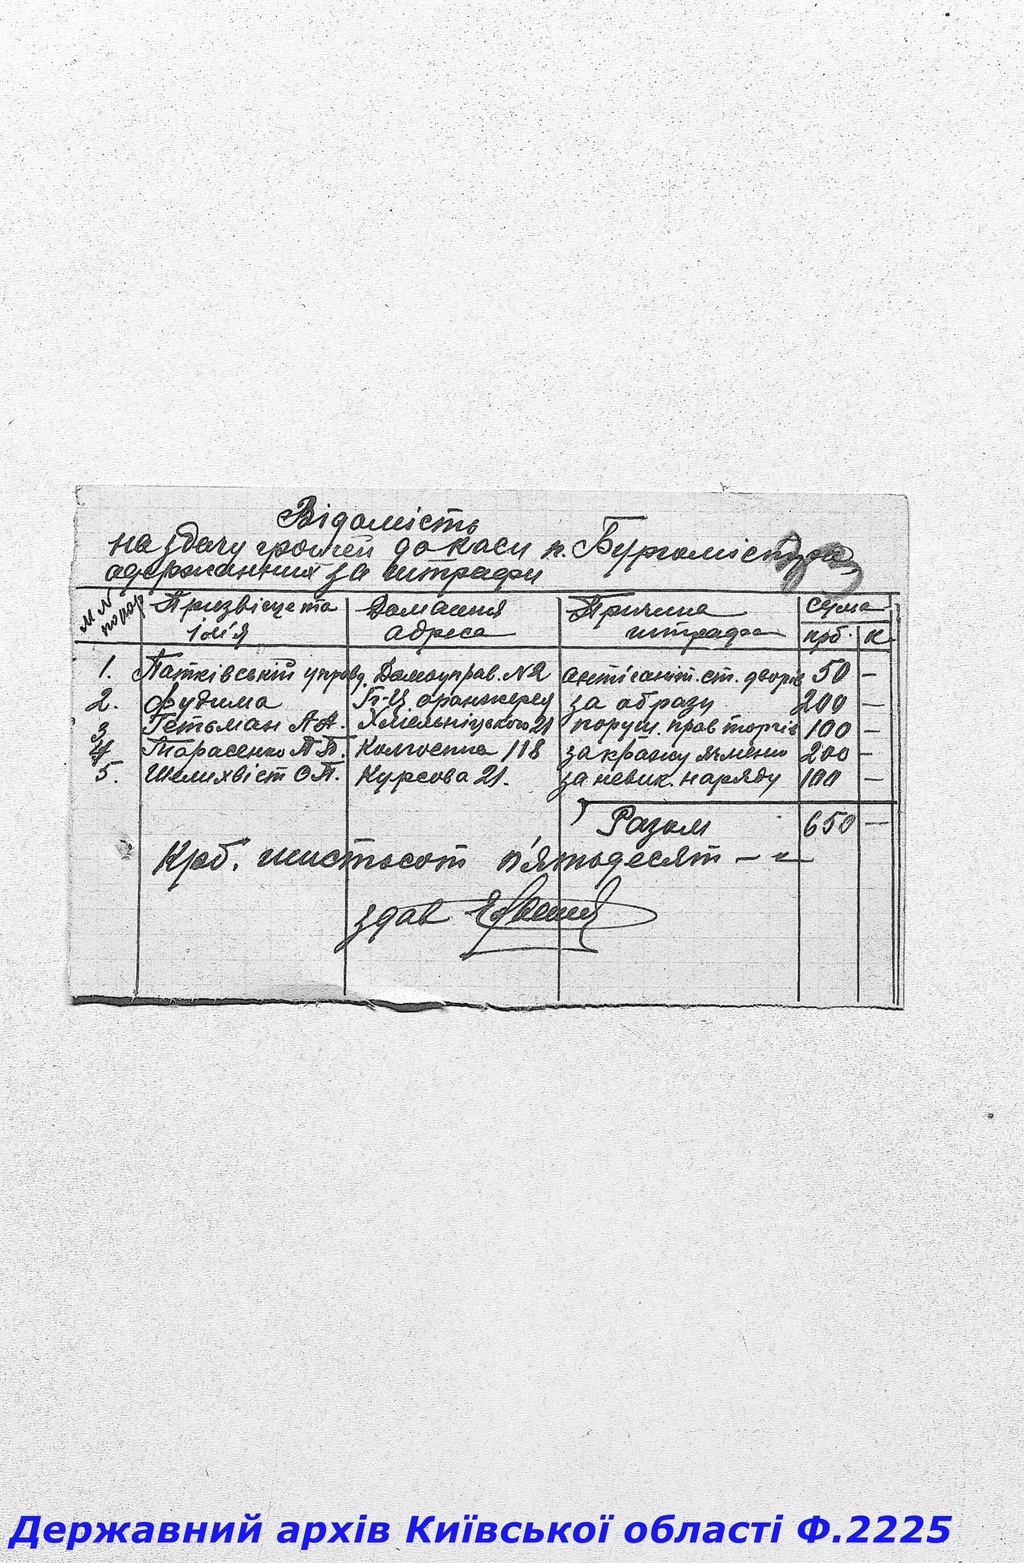 Відомість
на здачу грошей до каси п. Бургомістра
одержанних за штрафи
№ № попор Призвіще та Домашня Причина сума
ім'я адреса штрафа крб. к
1. Патківській управд. Домоуправ. №2 антісаніт. ст. дворів 50 —
2. Фудима оранжерея за образу 200 —
3 Гетьман А.А. Хмельніцького 21 поруш. прав торгів 100 —
4 Тарасенко П.П. Колгоспна 118 за кражу ячменю 200 —
5. Шелихвіст О.П. Курсова 21. за невик. наряду 100 —
Разом 650 —
Крб. шистьсот п'ятьдесят — " —
здав
Державний архів Київської області Ф.2225